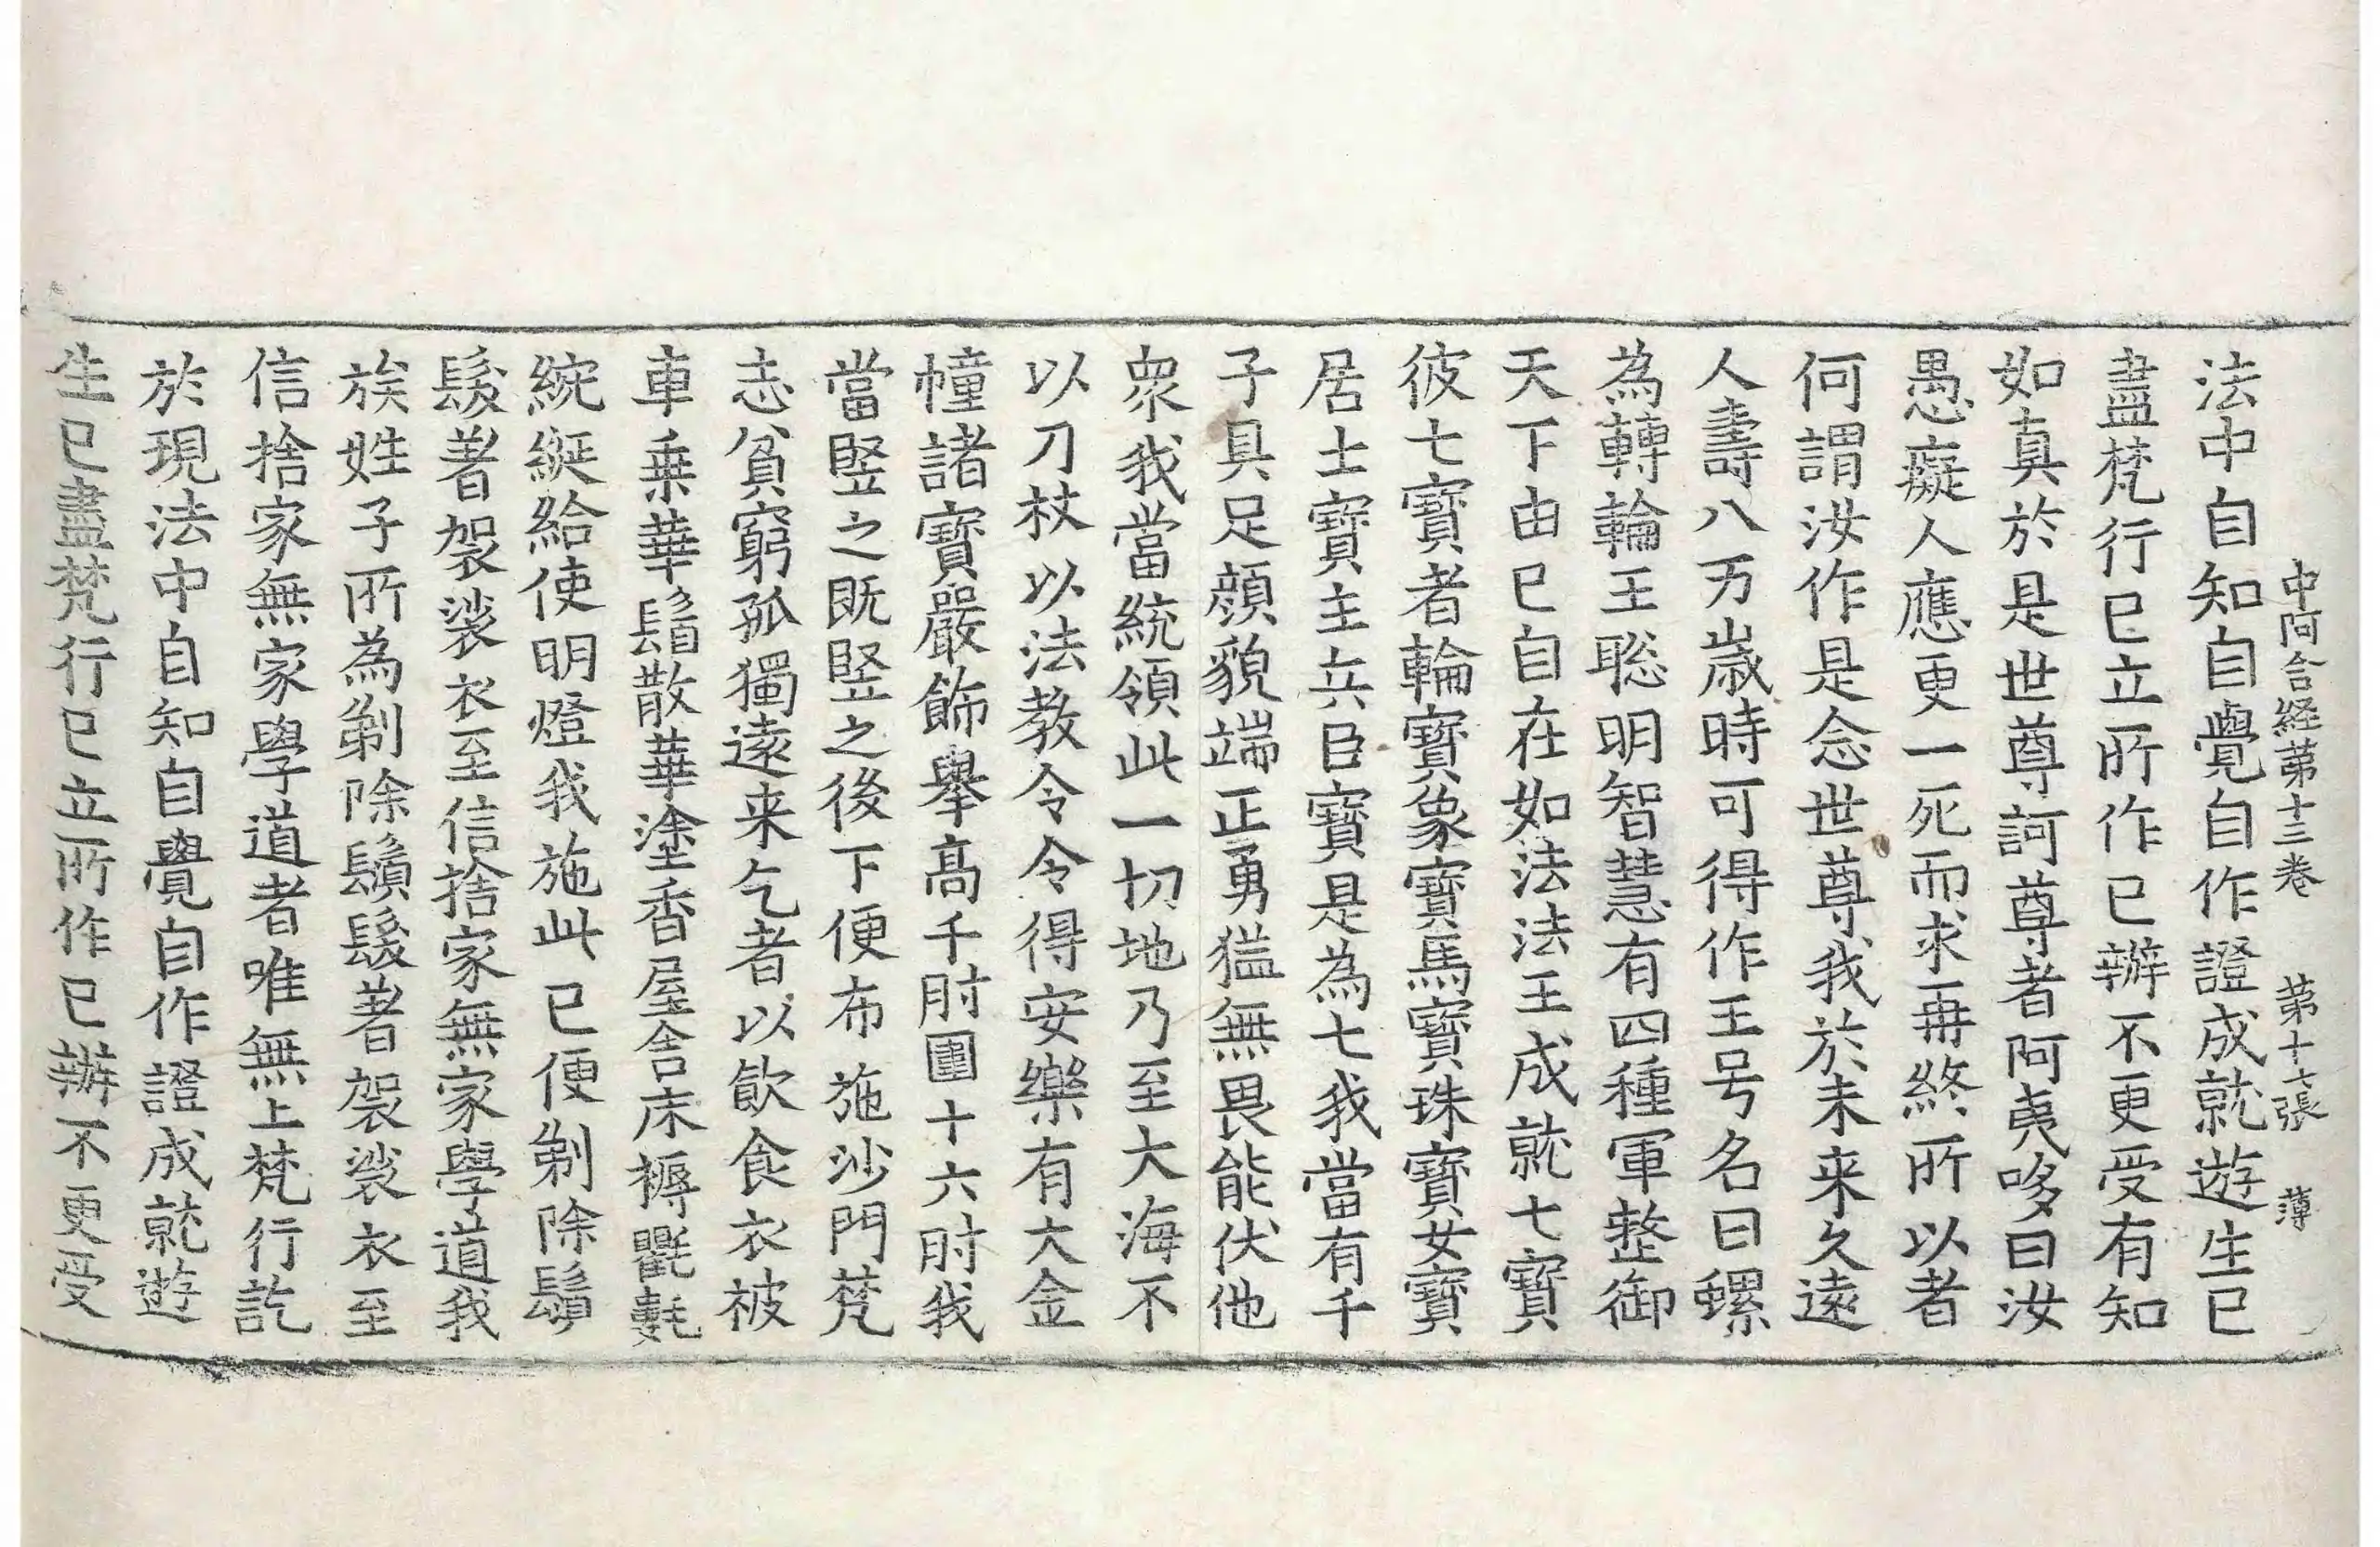 中阿含経第十三卷 第十七張 薄
法中自知自覺自作證成就遊生已
盡梵行已立所作已辦不更受有知
如真於是世尊訶尊者阿夷哆曰汝
愚癡人應更一死而求再終所以者
何謂汝作是念世尊我於未来久遠
人壽八万歲時可得作王号名曰螺
為轉輪王聡明智慧有四種軍整御
天下由已自在如法法王成就七寶
彼七寶者輪寶象寶馬寶珠寶女寶
居士寶主兵臣寶是為七我當有千
子具足顔貌端正勇猛無畏能伏他
衆我當統領此一切地乃至大海不
以刀杖以法教令令得安樂有大金
幢諸寶嚴飾舉髙千肘圍十六肘我
當竪之既竪之後下便布施沙門梵
志貧窮孤獨遠来乞者以飲食衣被
車乗華鬘散華塗香屋舎床褥氍㲣
綩綖給使明燈我施此已便剃除鬚
髮著袈裟衣至信捨家無家學道我
族姓子所為剃除鬚髮著袈裟衣至
信捨家無家學道者唯無上梵行訖
於現法中自知自覺自作證成就遊
生已盡梵行已立所作已辦不更受